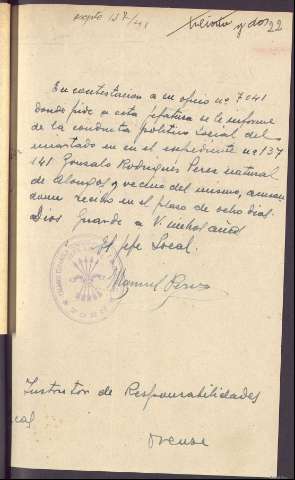 expte 137/41
treinta y dos 22
En contestacion a su oficio nº 7041
donde pide a esta jefatura se le informe
de la conducta politico Social del
encartado en el expediente nº 137
141 Gonzalo Rodrigues Peres natural
de Alongos y vecino del mismo,
recibo en el plazo de ocho dias
Dios Guarde a V. muchos años
El jefe Local.
Manuel Peres
Instrutor de Responsabilidades
Orense